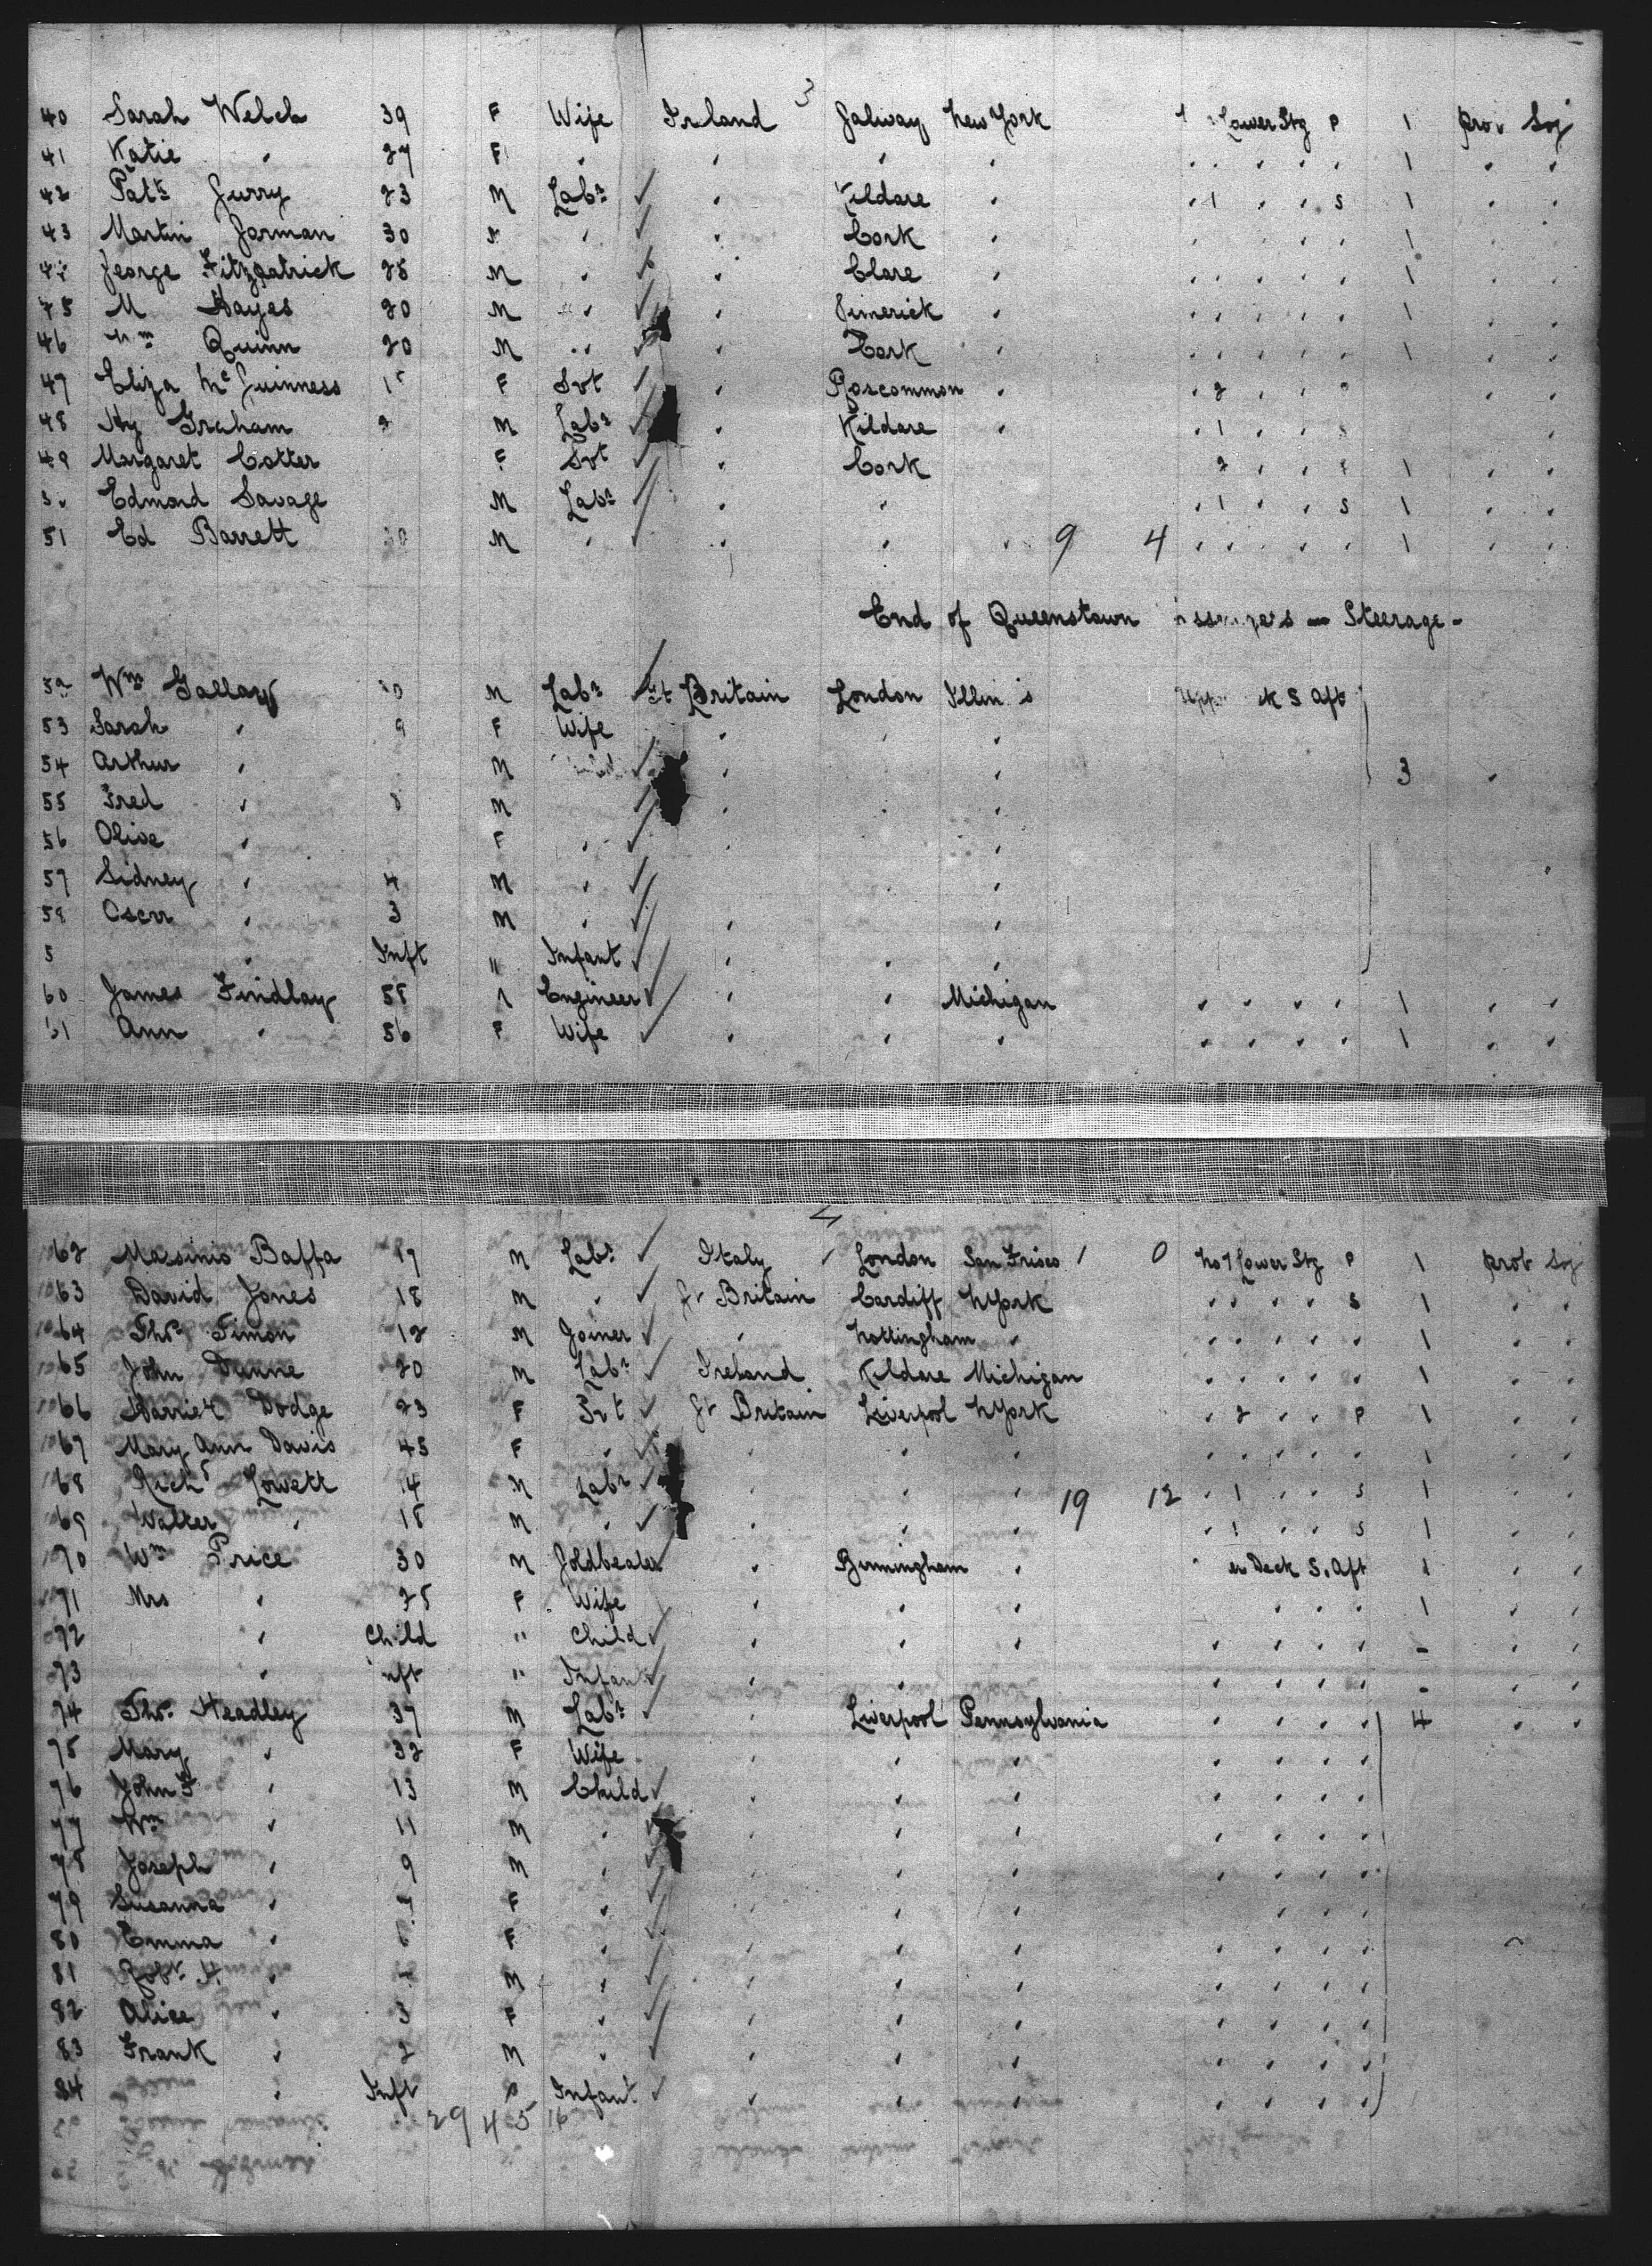 3
40 Sarah Welch 39 F Wife Irland Galway New York 1 Lower Stg P 1 prov Soj
41 Katie " 27 F " " " " " " " " " 1 " "
42 Patk Gurry 23 M Labr " Kildare " " 1 " " S 1 " "
43 Martin Gorman 30 M " " Cork " " " " " " 1 " "
44 George Fitzpatrick 28 M " " Clare " " " " " " 1 " "
45 M Hayes 20 M " " Limerick " " " " " " 1 " "
46 Wm Quinn 20 M " " Cork " " " " " " 1 " "
47 Eliza McGuinness F Svt " Roscommon " " 2 " " " "
48 Hy Graham M Labr " Kildare " " 1 " " "
49 Margaret Cotter F Svt " Cork 2 " " 1 " "
Edmond Savage M Labr " " " 1 " " S 1 " "
51 Ed Barrett M " " " " 9 4 " " " " " 1 " "
End of Queenstown Steerage -
Wm Gallaf M Labr Gt Britain London S Aft
53 Sarah " 9 F Wife " " "
54 Arthur " M " " 3 "
55 Fred " 8 M " " "
56 Olive " F " " "
57 Sidney " 4 M " "
58 " 3 M " " "
" Inft " Infant " " "
60 James Findlay 58 Engineer " " Michigan " " " " 1 " "
61 Ann " 56 F Wife " " " " " " " 1 " "
62 Massinio Baffa 17 M Labr Italy London San Frisco 1 0 No 1 Lower Stg P 1 prov Soj
63 David Jones 18 M " Gt Britain Cardiff NYork " " " " S 1 " "
64 Thos Timon 12 M Joiner " Nottingham " " " " " " 1 " "
65 John Dunne 20 M Labr Ireland Kildare Michigan " " " " " 1 " "
66 Harriet Dodge 23 F Svt Gt Britain Liverpool NYork " 2 " " P 1 " "
67 Mary Ann Davis 45 F " " " " " " " " " 1 " "
68 Richd Lowett 14 M Labr " " " 19 12 " 1 " " S 1 " "
69 Walter " 18 M " " " " " 1 " " S 1 " "
70 Wm Price 30 M Goldbeater " Birmingham " Deck S. Aft 1 " "
71 Mrs " 25 F Wife " " " " " " 1 " "
72 " Child " Child " " " " " " " - " "
73 " " Infant " " " " " " - " "
74 Thos Headley 37 M Labr " Liverpool Pennsylvania " " " " 4 " "
75 Mary " 32 F Wife " " " " " " "
76 John F " 13 M Child " " " " " " "
77 Wm " 11 M " " " " " " "
78 Joseph " 9 M " " " " " " " "
79 Susanna " 7 F " " " " " " "
80 Emma " 6 F " " " " " " " "
81 Robt H " M " " " " " " " "
82 Alice " 3 F " " " " " " " "
83 Frank " 2 M " " " " " " " "
84 " Inft " Infant " " " " " " "
29 45 16